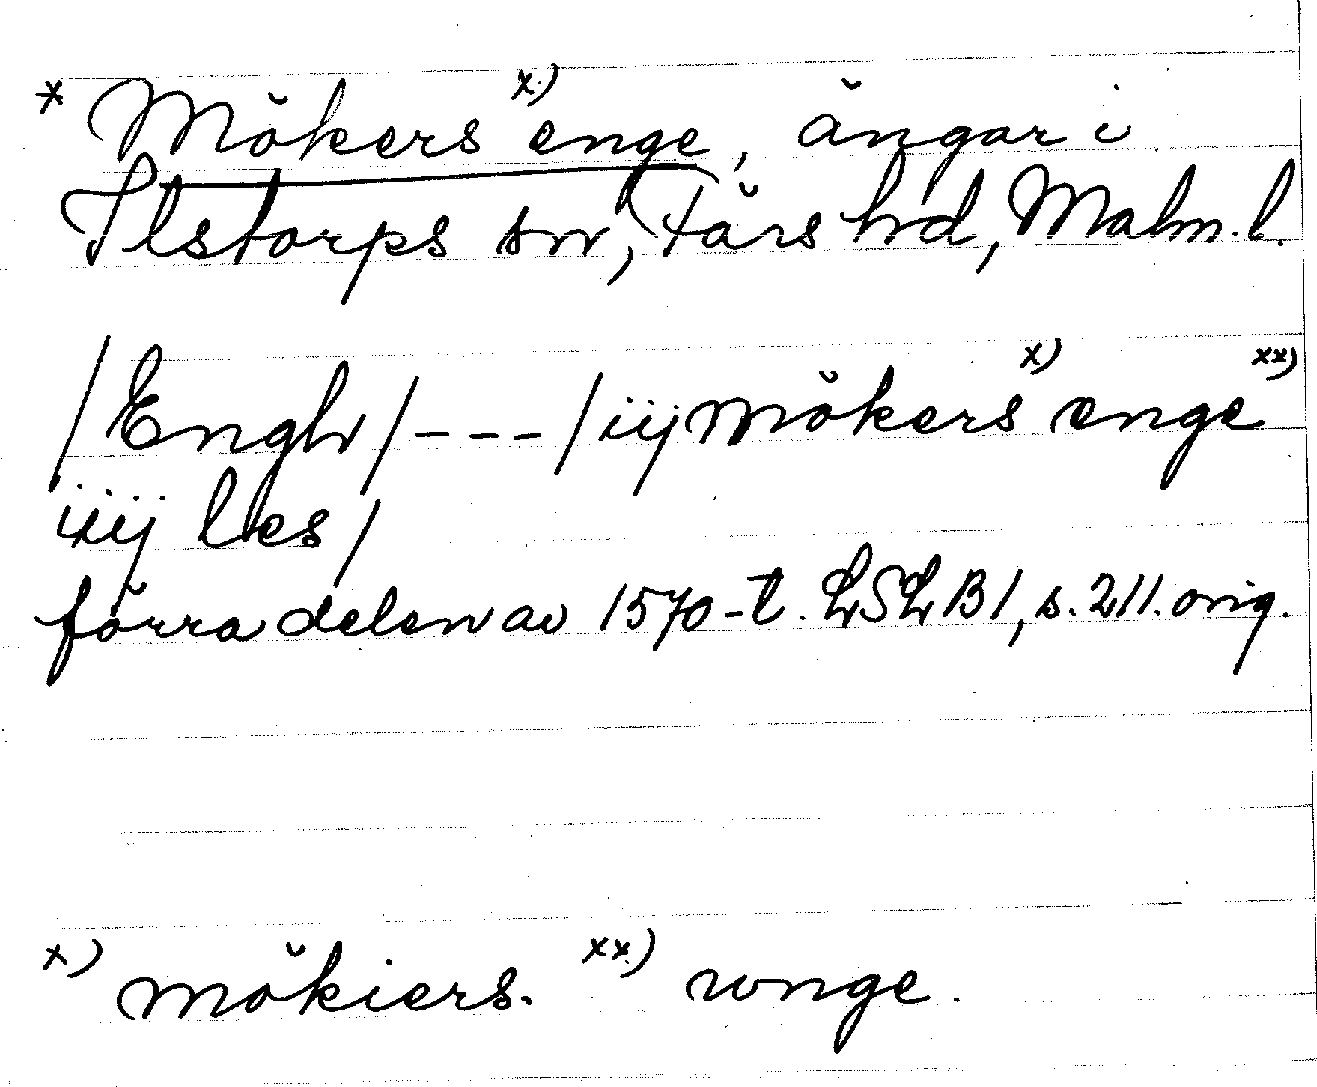 * Mökers x) enge, ängar i
Ilstorps sn, Färs hd, Malm. l.
/Engh/---/iij mökers x) enge xx)
iiij les/
förra delen av 1570-t. LSLB1, s. 211. orig.
x) mökiers. xx) wnge.